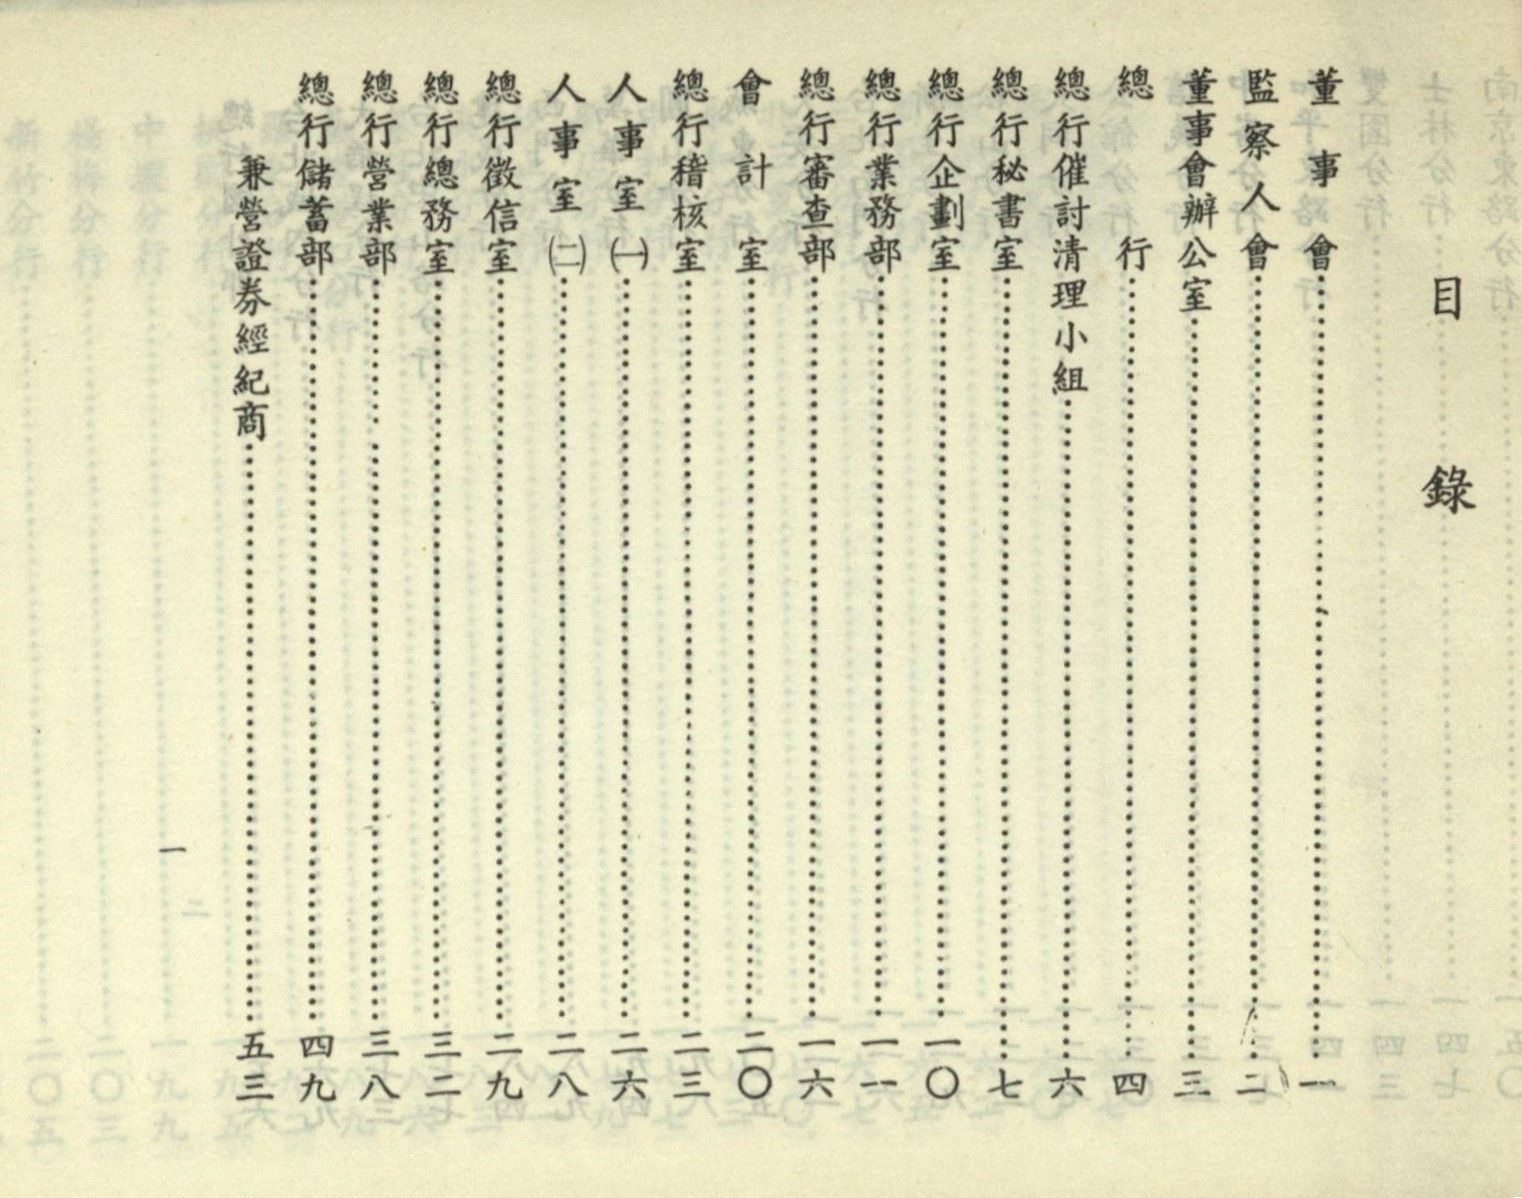 目錄
董事會……一
監察人會……二
董事會辦公室……三
總行……四
總行催討清理小組……六
總行秘書室……七
總行企劃室……一〇
總行業務部……一一
總行審查部……一六
會計室……二〇
總行稽核室……二三
人事室㈠……二六
人事室㈡……二八
總行徵信室……二九
總行總務室……三二
總行營業部……三八
總行儲蓄部……四九
兼營證券經紀商……五三
一